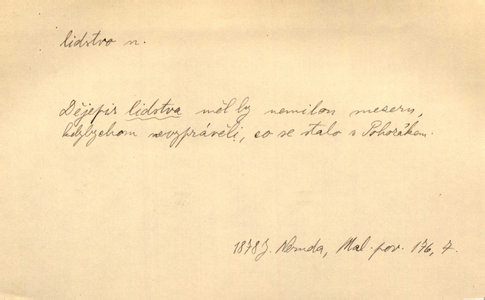 lidstvo n.
Dějepis lidstva měl by nemilou mezeru,
kdybychom nevyprávěli, co se stalo s Pohořákem.
1878 J. Neruda, Mal. pov. 176, 7.